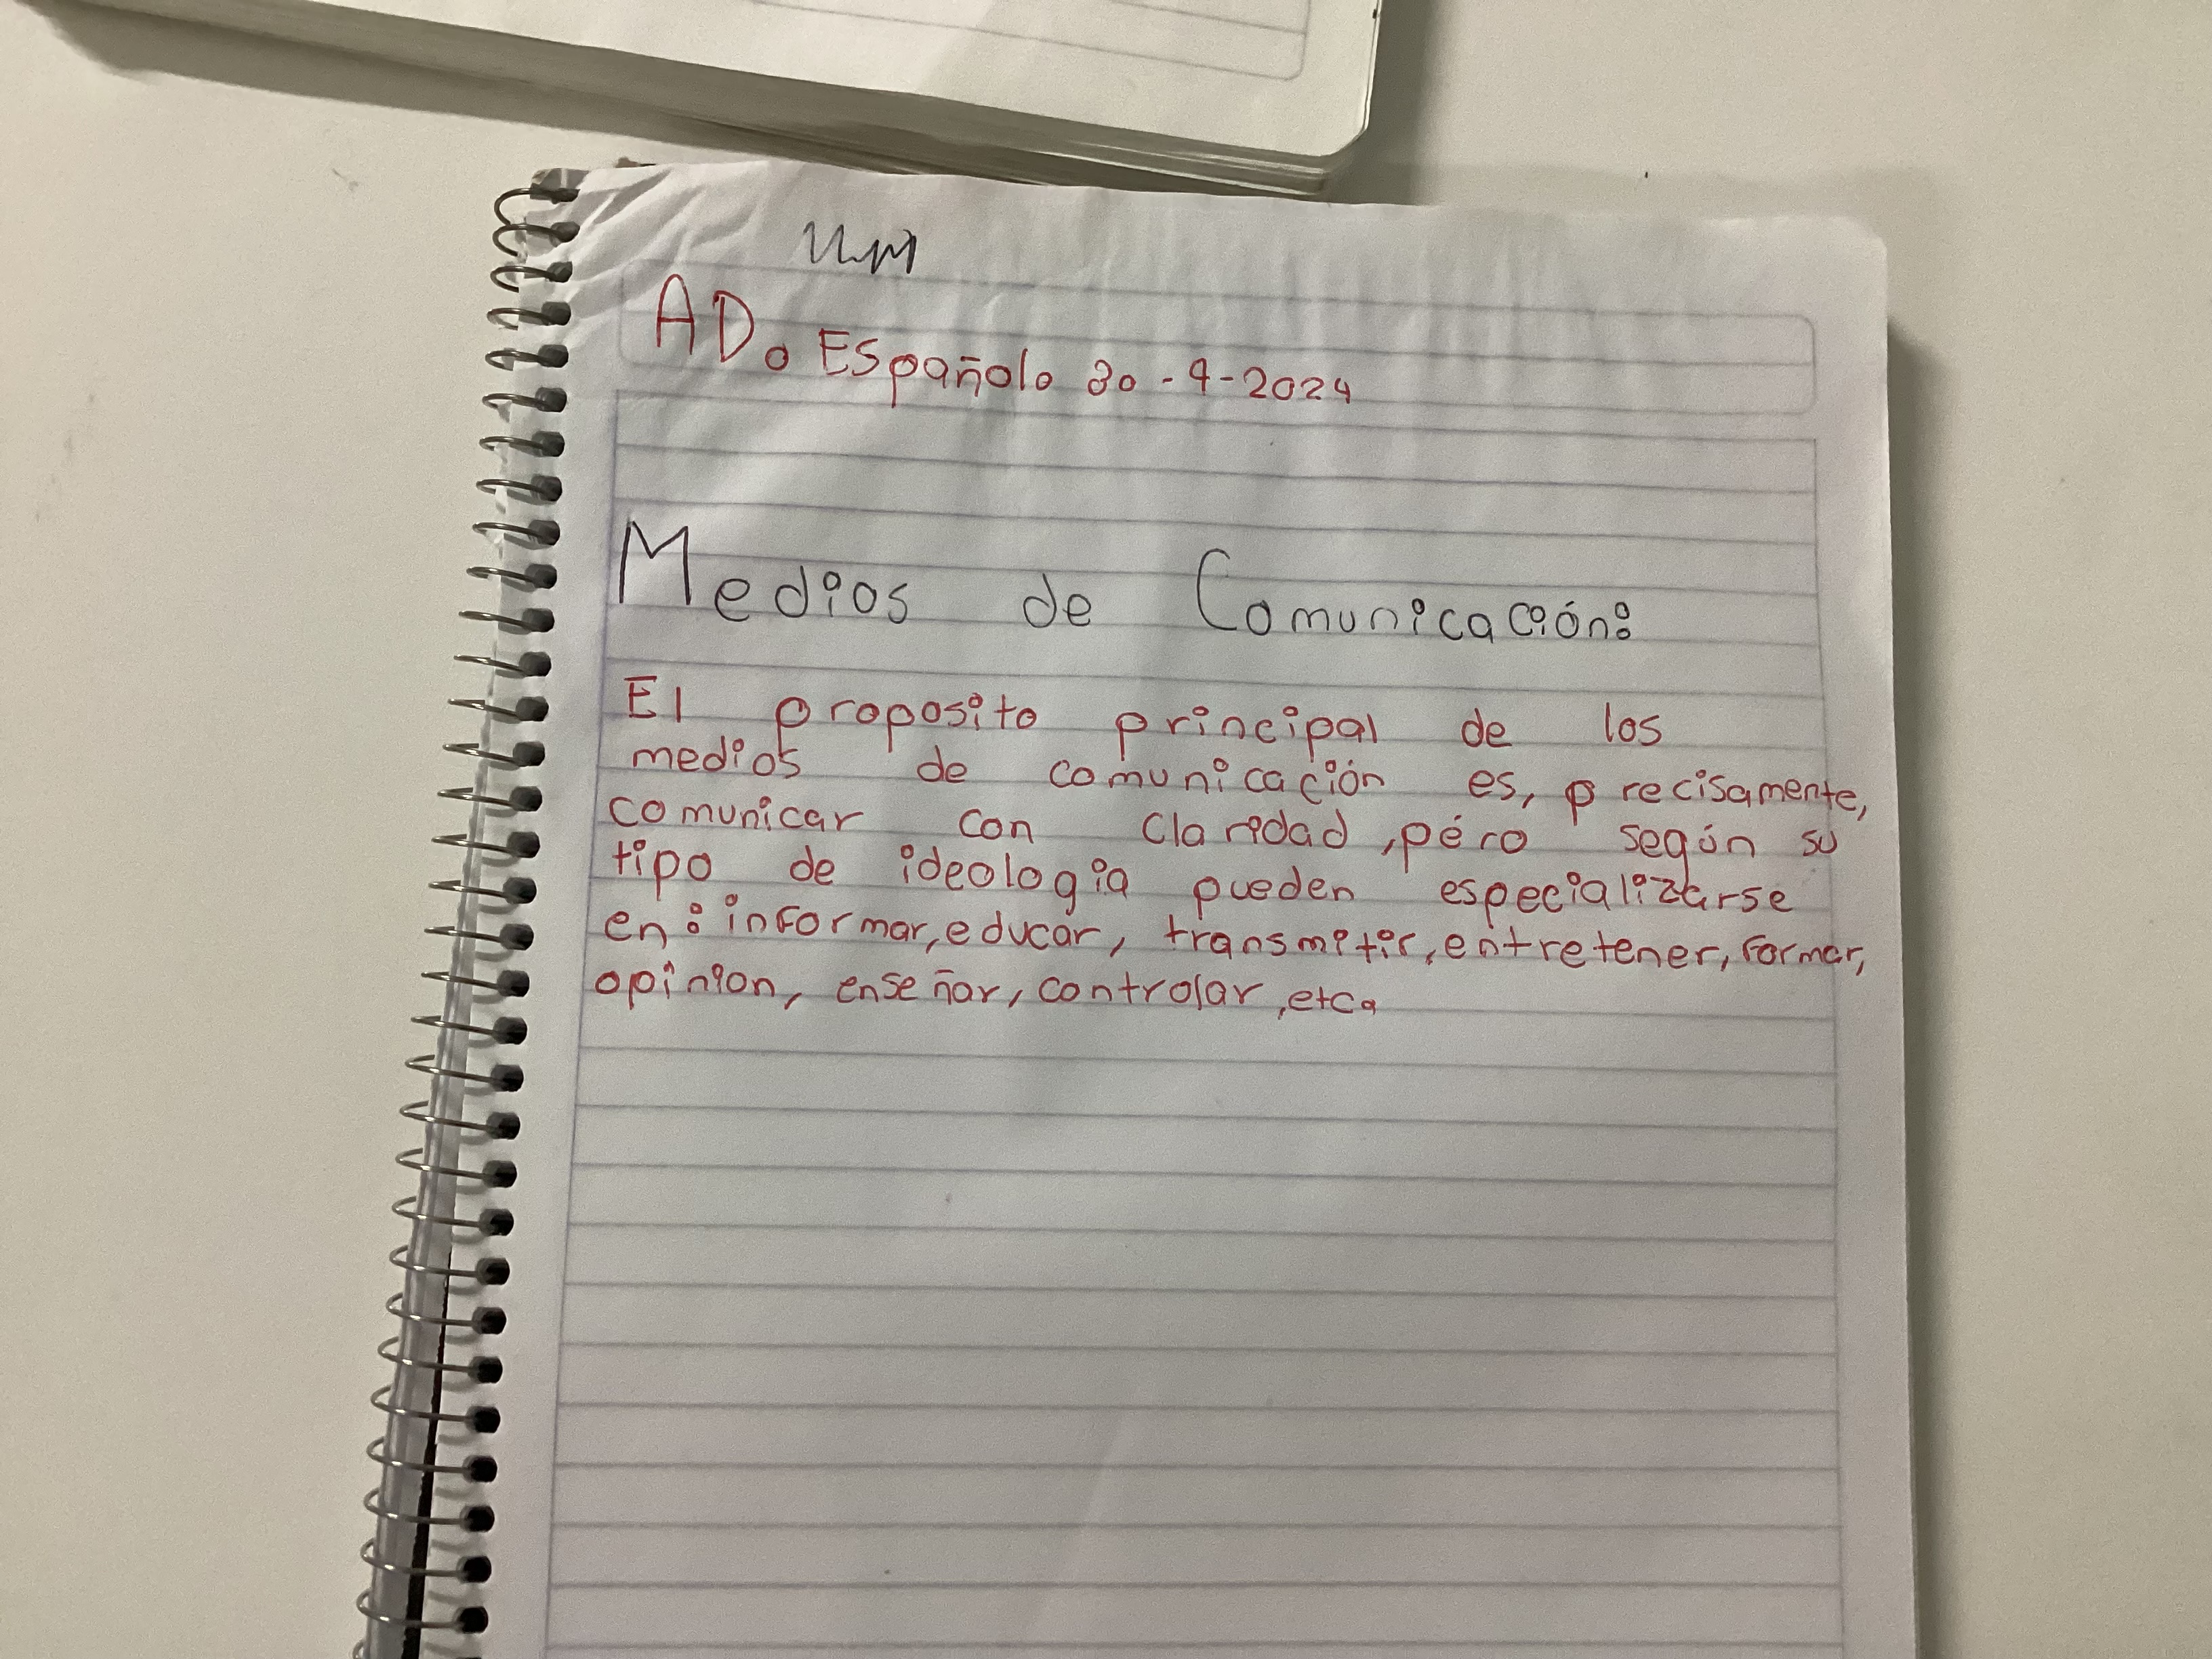 AD. Español. 30-9-2024
Medios de Comunicación:
El proposito principal de los
medios de comunicación es, precisamente,
comunicar con claridad, péro según su
tipo de ideologia pueden especializarse
en: informar, educar, transmitir, entretener, formar,
opinion, enseñar, controlar, etc.